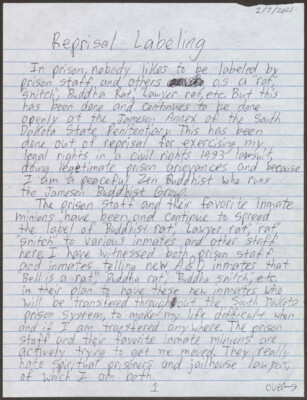 2/7/2021
Reprisal Labeling
In prison, nobody likes to be labeled by
prison staff and others as a rat,
snitch, Buddha Rat, Lawyer rat, etc. But this
has been done and continues to be done
openly at the Jameson Annex of the South
Dakota State Penitentiary. This has been
done out of reprisal for exercising my
legal rights in a civil rights 1983 lawsuit,
doing legitimate prison grievances and because
I am a peaceful Zen Buddhist who runs
the Jameson Buddhist Group.
The prison staff and their favorite inmate
minions have been and continue to spread
the label of Buddhist rat, Lawyer rat, rat,
snitch to various inmates and other staff
here. I have witnessed both prison staff
and inmates telling new A&O inmates that
Bell is a rat, Buddha rat, Buddha snitch, etc.
in their plan to have these new inmates who
will be transfered throughout the South Dakota
prison system, to make my life difficult when
and if I am transfered anywhere. The prison
staff and their favorite inmate minions are
actively trying to get me moved. They really
hate spiritual prisoners and jailhouse lawyers,
of which I am both.
1
OVER→